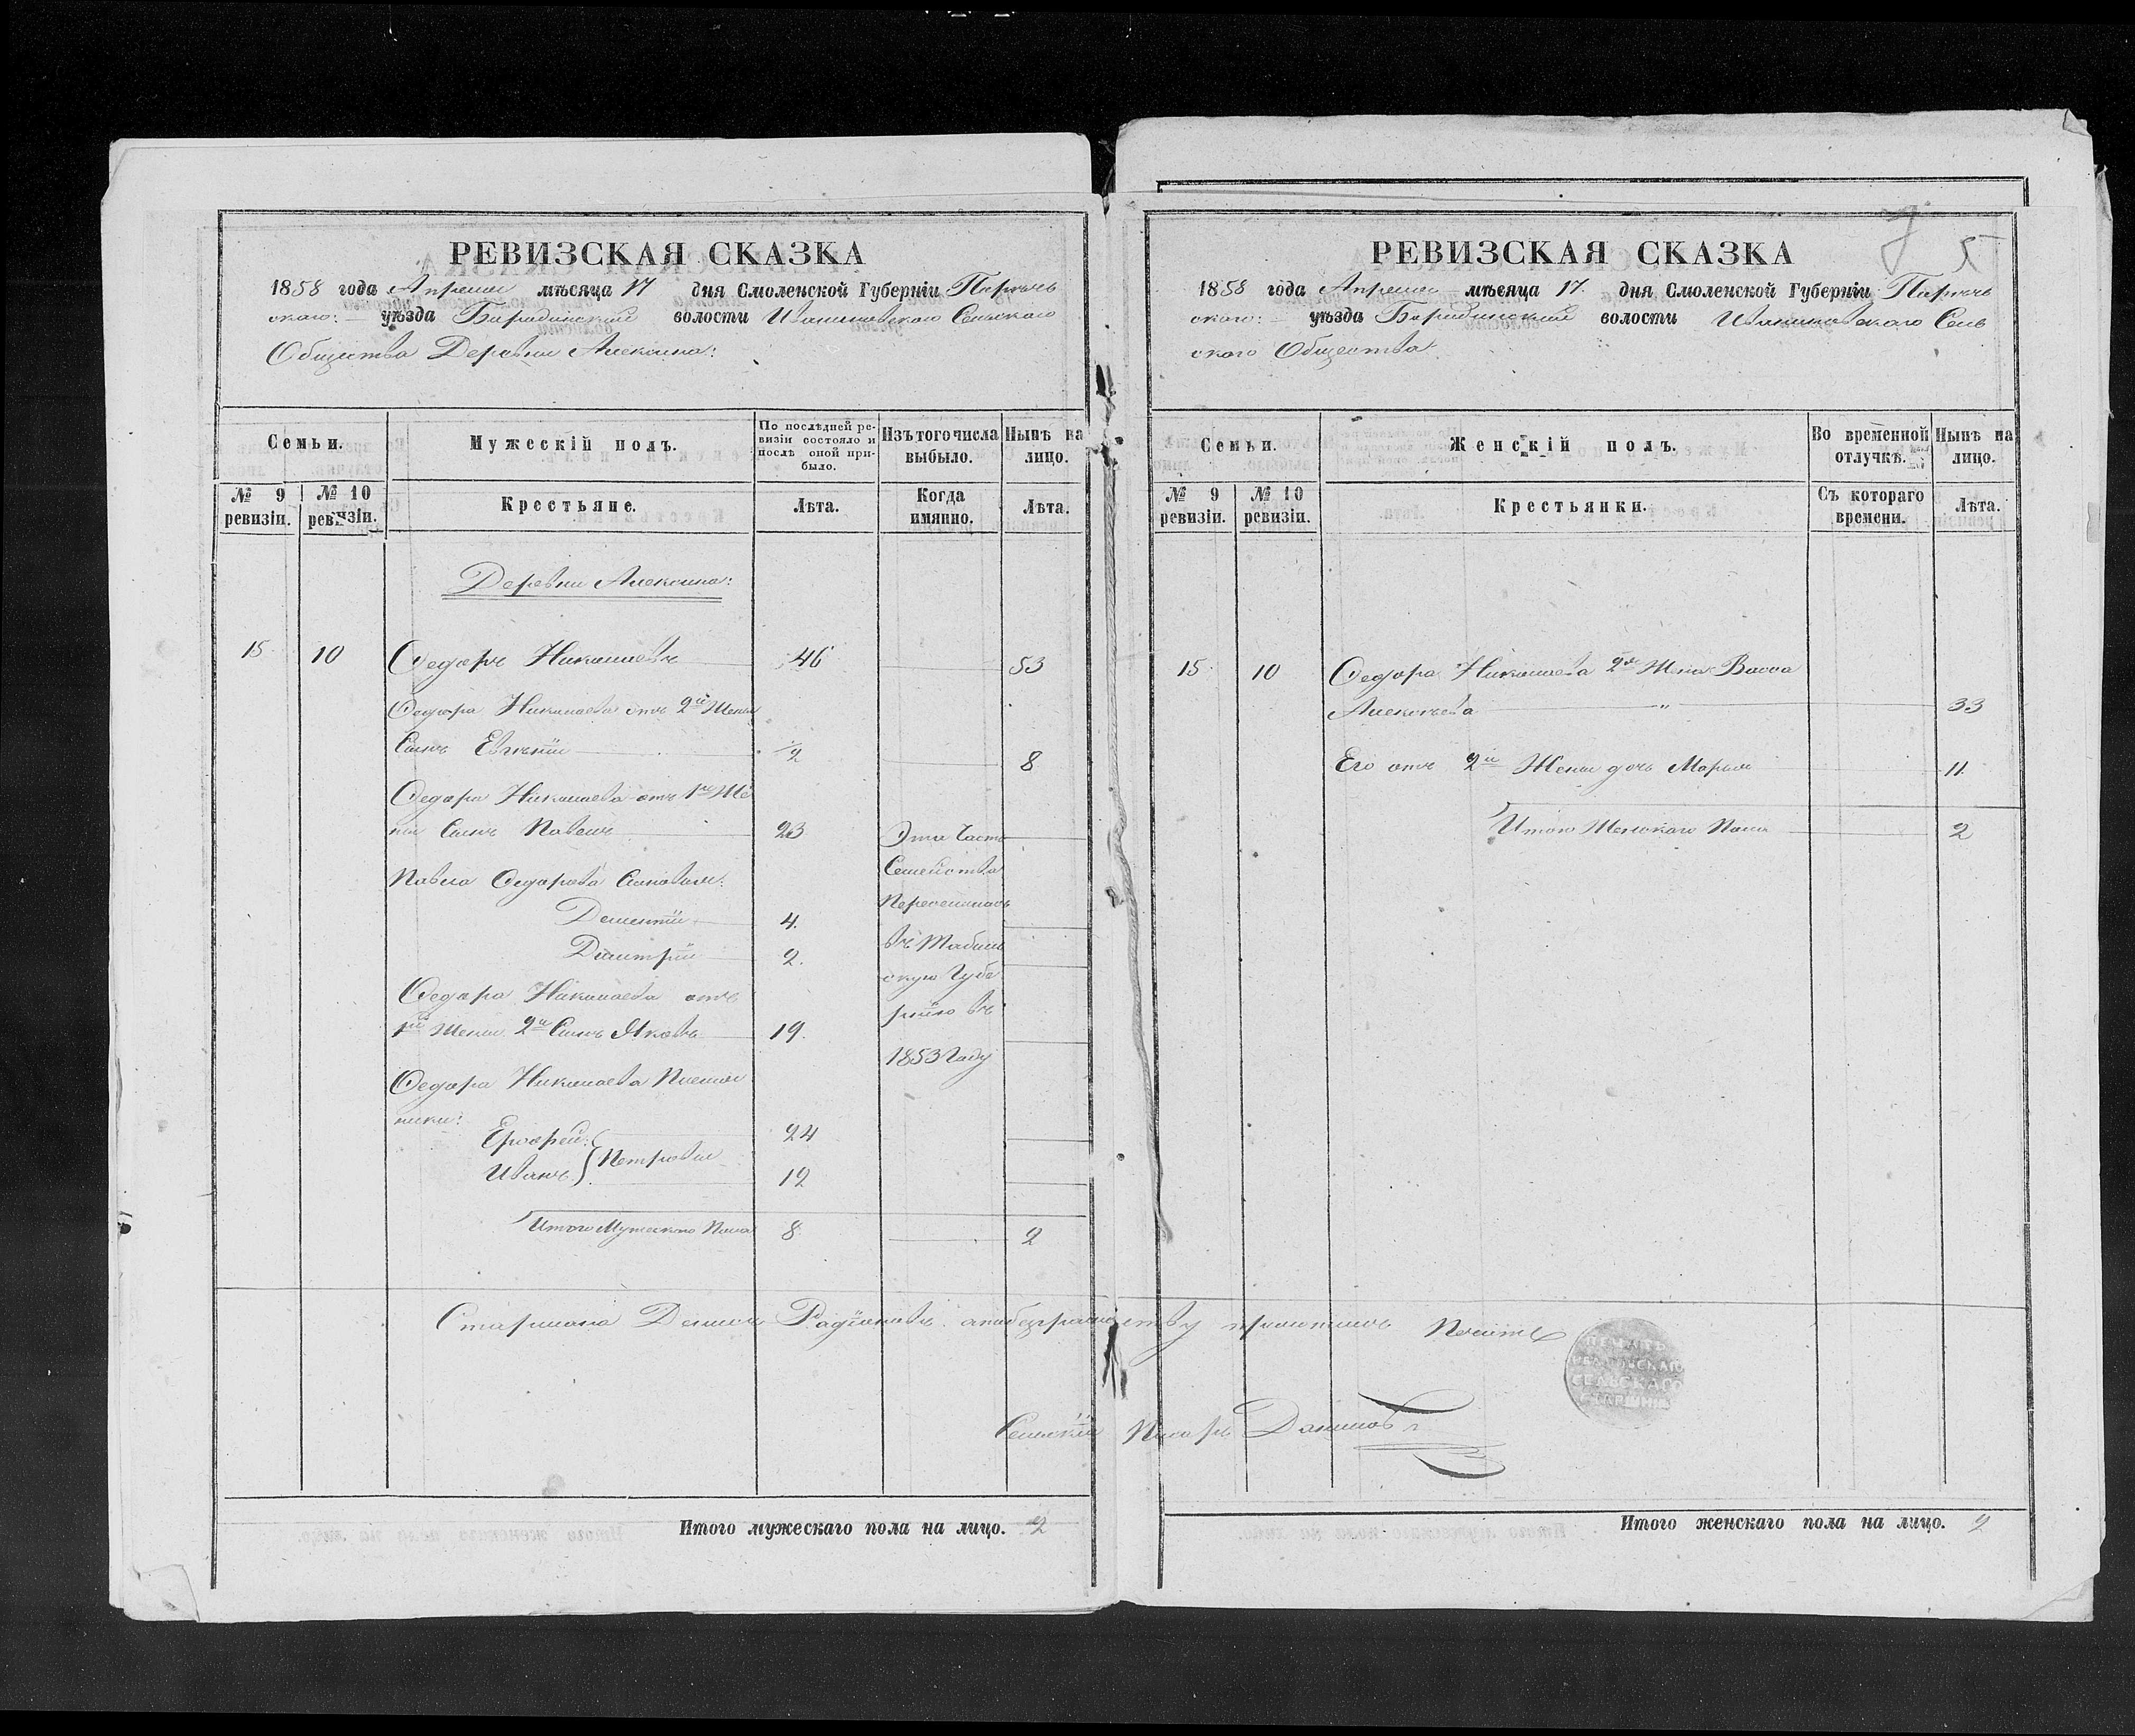 РЕВИЗСКАЯ СКАЗКА
1858 года Апреля мѣсяца 17 дня Смоленской Губерніи Порѣчь
скаго: уѣзда Бородинской волости Иваниковскаго Сельскаго
Общества Деревни Алексина:
Семьи.
Мужескій полъ.
По послѣдней ре-
визіи состояло и
послѣ оной при-
было.
Изъ того числа
выбыло.
Нынѣ на
лицо.
№ 9
ревизіи.
№ 10
ревизіи.
Крестьяне.
Лѣта.
Когда
имянно.
Лѣта.
Деревни Алексина:
15 10 Ѳедоръ Николаевъ 46 53
Ѳедора Николаева отъ 2й Жены
Сынъ Евгеній 1/2 8
Ѳедора Николаева отъ 1й Же
ны Сынъ Павелъ 23 Эта Часть
Павла Ѳедорова Сыновья: Семейства
Переселилась
Дементій 4.
въ Тобол
Дмитрій 2.
скую Губе
Ѳедора Николаева отъ
рнію въ
1й Жены 2й Сынъ Яковъ 19.
1853 Году
Ѳедора Николаева Племян
ники:
Ерофей: 24
Иванъ } Петровы 12
Итого Мужескаго Пола 8 2
Старшина Демьянъ Радіоновъ а по безграмотству приложилъ Печать
Сельскій Писарь Даниловъ
Итого мужескаго пола на лицо. 2
РЕВИЗСКАЯ СКАЗКА
5
1858 года Апреля мѣсяца 17 дня Смоленской Губерніи Порѣчь
скаго: уѣзда Бородинской волости Иваниковскаго Сель
скаго Общества
Семьи.
Женскій полъ.
Во временной
отлучкѣ.
Нынѣ на
лицо.
№ 9
ревизіи.
№ 10
ревизіи.
Крестьянки.
Съ котораго
времени.
Лѣта.
15 10 Ѳедора Николаева 2я Жена Васса
Алексѣева " 33
Его отъ 2й Жены дочь Марья 11
Итого Женскаго Пола 2
ПЕЧАТЬ
СЕЛЬСКАГО
СТАРШИНЫ
Итого женскаго пола на лицо. 2